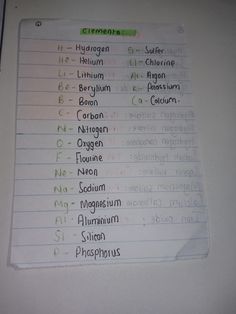 Elements
H - Hydrogen
He - Helium
Li - Lithium
Be - Beryllium
B - Boron
C - Carbon
N - Nitrogen
O - Oxygen
F - Flourine
Ne - Neon
Na - Sodium
Mg - Magnesium
Al - Aluminium
Si - Silicon
P - Phosphorus
S - Sulfer
Cl - Chlorine
Ar - Argon
K - Potassium
Ca - Calcium